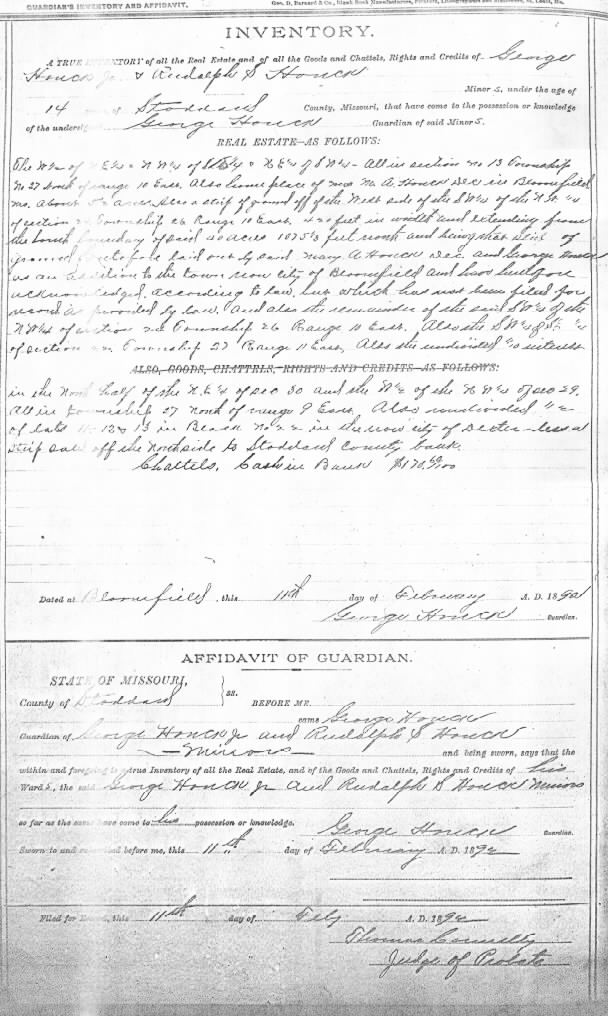 GUARDIAN'S INVENTORY AND AFFIDAVIT.
Geo. D. Barnard & Co., Blank Book Manufacturers, Printers, Lithographers and Stationers, St. Louis, Mo.
INVENTORY.
A TRUE INVENTORY of all the Real Estate and of all the Goods and Chattels, Rights and Credits of George
Houck Jr & Rudolph S Houck
Minor s, under the age of
14 of Stoddard County, Missouri, that have come to the possession or knowledge
of the undersigned George Houck Guardian of said Minor s.
REAL ESTATE—AS FOLLOWS:
The of N E ¼ & N W ¼ of & N E ¼ of S W ¼ - All in section no 13 Township
No 27 North of range 10 East. Also home place of Mrs M. A. Houck Dec in Bloomfield
Mo. About acres. Also a strip of ground off of the West side of the S W ¼ of the N W ¼
of section Township 26 Range 10 East, 420 feet in width and extending from
the South boundary of said 40 acres 1075 ⅓ feet north and being that strip of
ground heretofore laid out by said Mary A Houck Dec and George Houck
as an addition to the town now city of Bloomfield and have heretofore
acknowledged, according to law, but which has not been filed for
record as provided by law. And also the remainder of the said S W ¼ of the
N W ¼ of section Township 26 Range 10 East. Also the S W ¼ of
of section Township 27 Range 11 East, Also the undivided interest
ALSO, GOODS, CHATTELS, RIGHTS AND CREDITS—AS FOLLOWS:
in the North half of the N. E ¼ of Sec 30 and the W ½ of the N W ¼ of Sec 29.
All in Township 27 North of range 9 East, Also undivided ½
of lots 11 12 & 13 in Block No in the now city of Dexter - less a
strip sold off the North side to Stoddard County bank.
Chattels, Cash in Bank
Dated at Bloomfield, this 11th day of February A. D. 1892
George Houck Guardian.
AFFIDAVIT OF GUARDIAN.
STATE OF MISSOURI,
County of Stoddard } ss. BEFORE ME,
came George Houck
Guardian of George Houck Jr and Rudolph S Houck
- Minors - and being sworn, says that the
within and foregoing is a true Inventory of all the Real Estate, and of the Goods and Chattels, Rights and Credits of his
Ward s, the said George Houck Jr and Rudolph S Houck Minors
so far as the same have come to his possession or knowledge.
George Houck Guardian.
Sworn to and subscribed before me, this 11th day of February A. D. 1892
Filed for Record, this 11th day of Feby A. D. 1892
Thomas Connelly
Judge of Probate